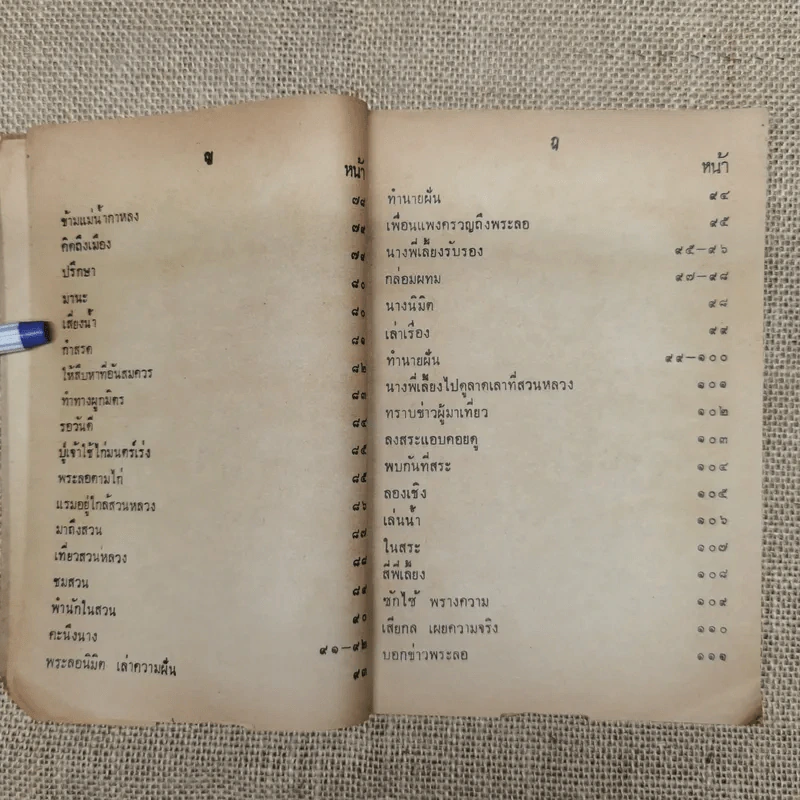 ญ
หน้า
ข้ามแม่น้ำกาหลง ๗๘
คิดถึงเมือง ๗๙
ปรึกษา ๗๙
มานะ ๘๐
เสี่ยงน้ำ ๘๐
กำสรด ๘๑
ให้สืบหาที่อันสมควร ๘๒
ทำทางผูกมิตร ๘๓
รอวันดี ๘๔
ปู่เจ้าใช้ไก่มนตร์เร่ง ๘๕
พระลอตามไก่ ๘๕
แรมอยู่ใกล้สวนหลวง ๘๖
มาถึงสวน ๘๗
เที่ยวสวนหลวง ๘๘
ชมสวน ๘๙
พำนักในสวน ๙๐
คะนึงนาง ๙๑—๙๒
พระลอนิมิต เล่าความฝัน ๙๓
ฎ
หน้า
ทำนายฝัน ๙๔
เพื่อนแพงครวญถึงพระลอ ๙๕
นางพี่เลี้ยงรับรอง ๙๕—๙๖
กล่อมผทม ๙๗—๙๘
นางนิมิต ๙๘
เล่าเรื่อง ๙๙
ทำนายฝัน ๙๙—๑๐๐
นางพี่เลี้ยงไปดูลาดเลาที่สวนหลวง ๑๐๑
ทราบข่าวผู้มาเที่ยว ๑๐๒
ลงสระแอบคอยดู ๑๐๓
พบกันที่สระ ๑๐๔
ลองเชิง ๑๐๕
เล่นน้ำ ๑๐๖
ในสระ ๑๐๗
สี่พี่เลี้ยง ๑๐๘
ซักไซ้ พรางความ ๑๐๙
เสียกล เผยความจริง ๑๑๐
บอกข่าวพระลอ ๑๑๑